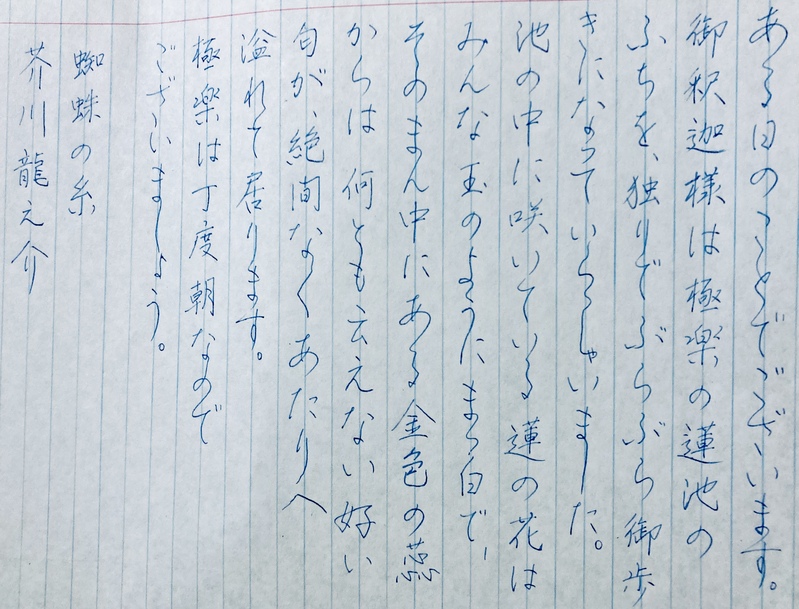 ある日のことでございます。
御釈迦様は極楽の蓮池の
ふちを、独りでぶらぶら御歩
きになっていらっしゃいました。
池の中に咲いている蓮の花は
みんな玉のようにまっ白で、
そのまん中にある金色の蕊
からは何とも云えない好い
匂が、絶間なくあたりへ
溢れて居ります。
極楽は丁度朝なので
ございましょう。
蜘蛛の糸
芥川龍之介